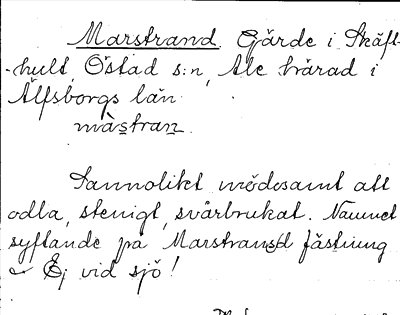 Marstrand. Gärde i Skäft-
-hult, Östad s:n, Ale härad i
Älfsborgs län
màstran.
Sannolikt mödosamt att
odla, stenigt, svårbrukat. Namnet
syftande på Marstrands fästning
Ej vid sjö!